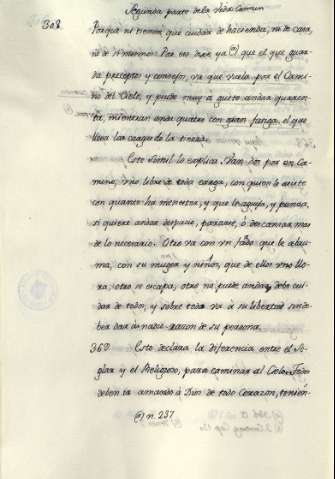 Segunda parte de la Vida Comun
308.
Porque no tienen que cuidar de hacienda, ni de casa,
ni de si mismos. Por eso dixe ya @ que el que guar-
da preceptos y consejos, va que vuela por el Cami-
no del Cielo, y puede muy a gusto andar quaren-
ta, mientras anda quatro con gran fatiga, el que
lleva las cargas de la tierra.
Este simil lo explica. Van dos por un Ca-
mino, uno libre de toda carga, con quien le asiste
con quanto ha menester, y que le aguija, y punza,
si quiere andar despacio, pararse, ó descansar mas
de lo necesario. Otro va con un que le abru-
ma, con su muger y niños, que de ellos uno llo-
ra, otro se escapa, otro no puede andar, debe cui-
dar de todo, y sobre todo va á su libertad sin de-
ber dar á nadie razon de su persona.
360 Esto declara la diferencia entre el Se-
glar y el Religioso, para caminar al Cielo. Todos
deben ir amando á Dios de todo Corazon, tenien-
@ n. 237